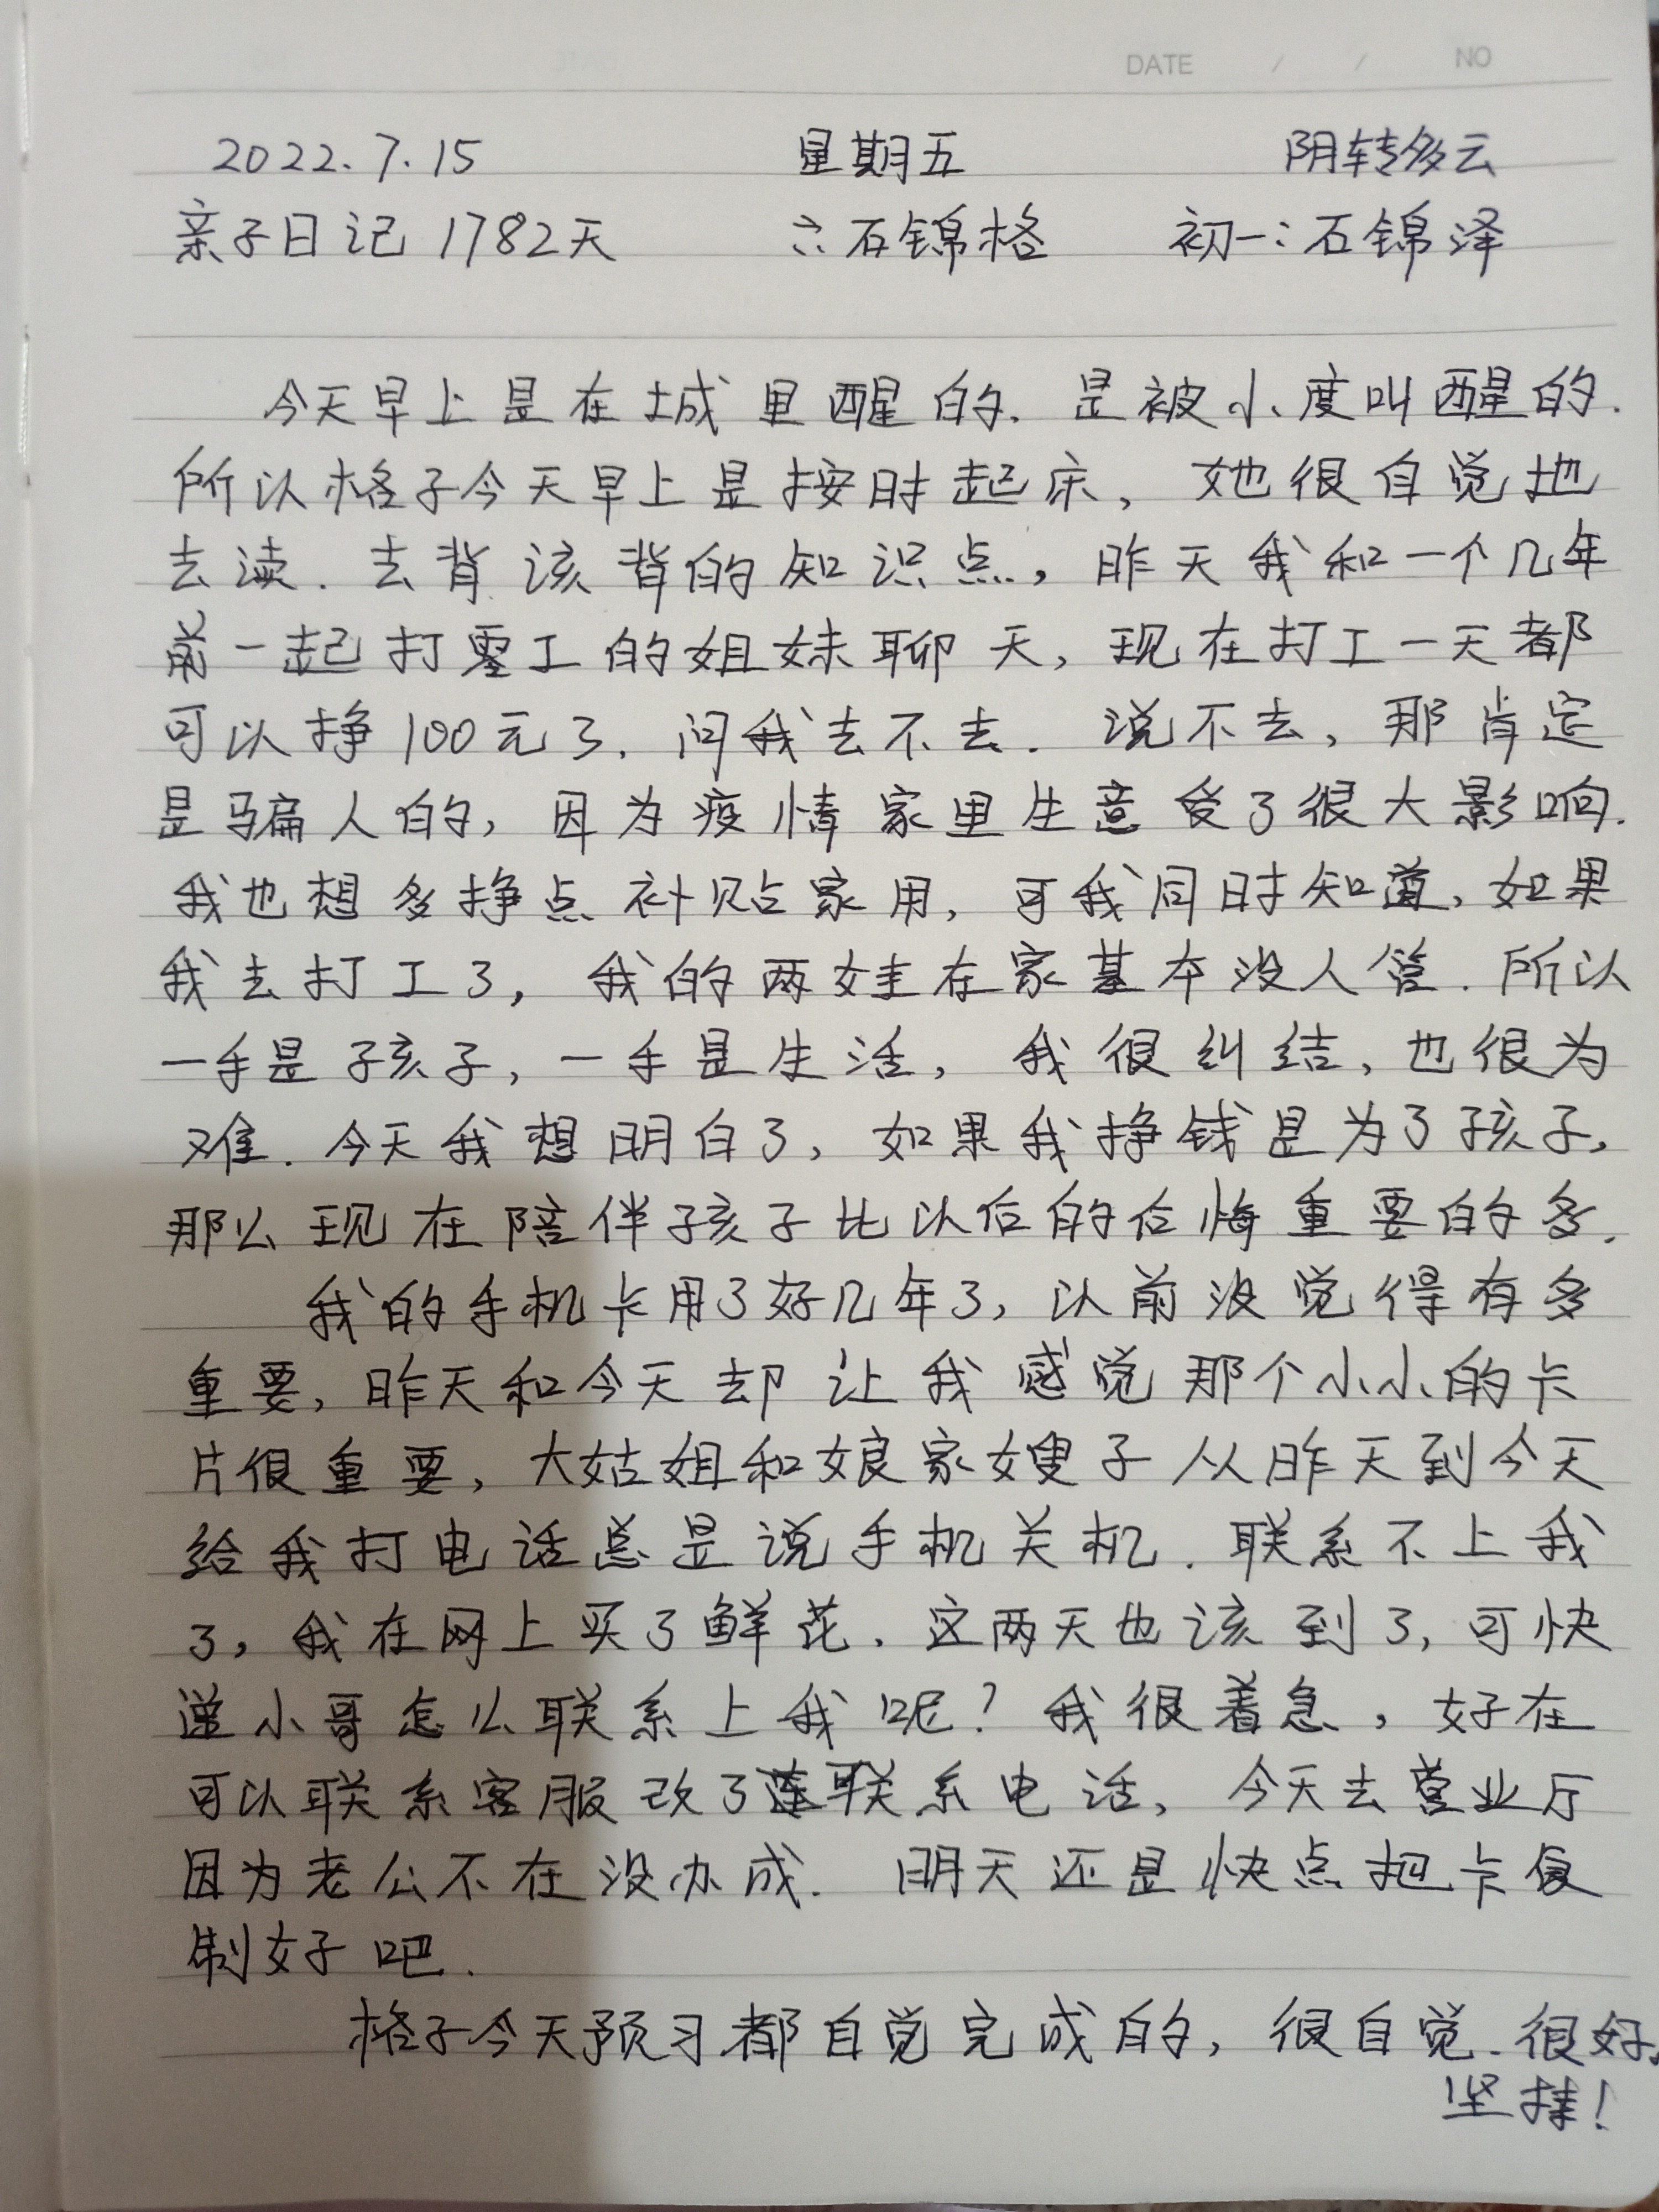 DATE / / NO
2022.7.15 星期五 阴转多云
亲子日记 1782天 六:石锦格 初一:石锦泽
今天早上是在城里醒的.是被小度叫醒的.
所以格子今天早上是按时起床,她很自觉地
去读.去背该背的知识点,昨天我和一个几年
前一起打零工的姐妹聊天,现在打工一天都
可以挣100元了.问我去不去.说不去,那肯定
是骗人的,因为疫情家里生意受了很大影响.
我也想多挣点补贴家用,可我同时知道,如果
我去打工了,我的两娃在家基本没人管.所以
一手是孩子,一手是生活,我很纠结,也很为
难.今天我想明白了,如果我挣钱是为了孩子,
那么现在陪伴孩子比以后的后悔重要的多.
我的手机卡用了好几年了,以前没觉得有多
重要,昨天和今天却让我感觉那个小小的卡
片很重要,大姑姐和娘家嫂子从昨天到今天
给我打电话总是说手机关机.联系不上我
了,我在网上买了鲜花.这两天也该到了,可快
递小哥怎么联系上我呢?我很着急,好在
可以联系客服改了联系电话,今天去营业厅
因为老公不在没办成.明天还是快点把卡复
制好吧.
格子今天预习都自觉完成的,很自觉.很好,
坚持!